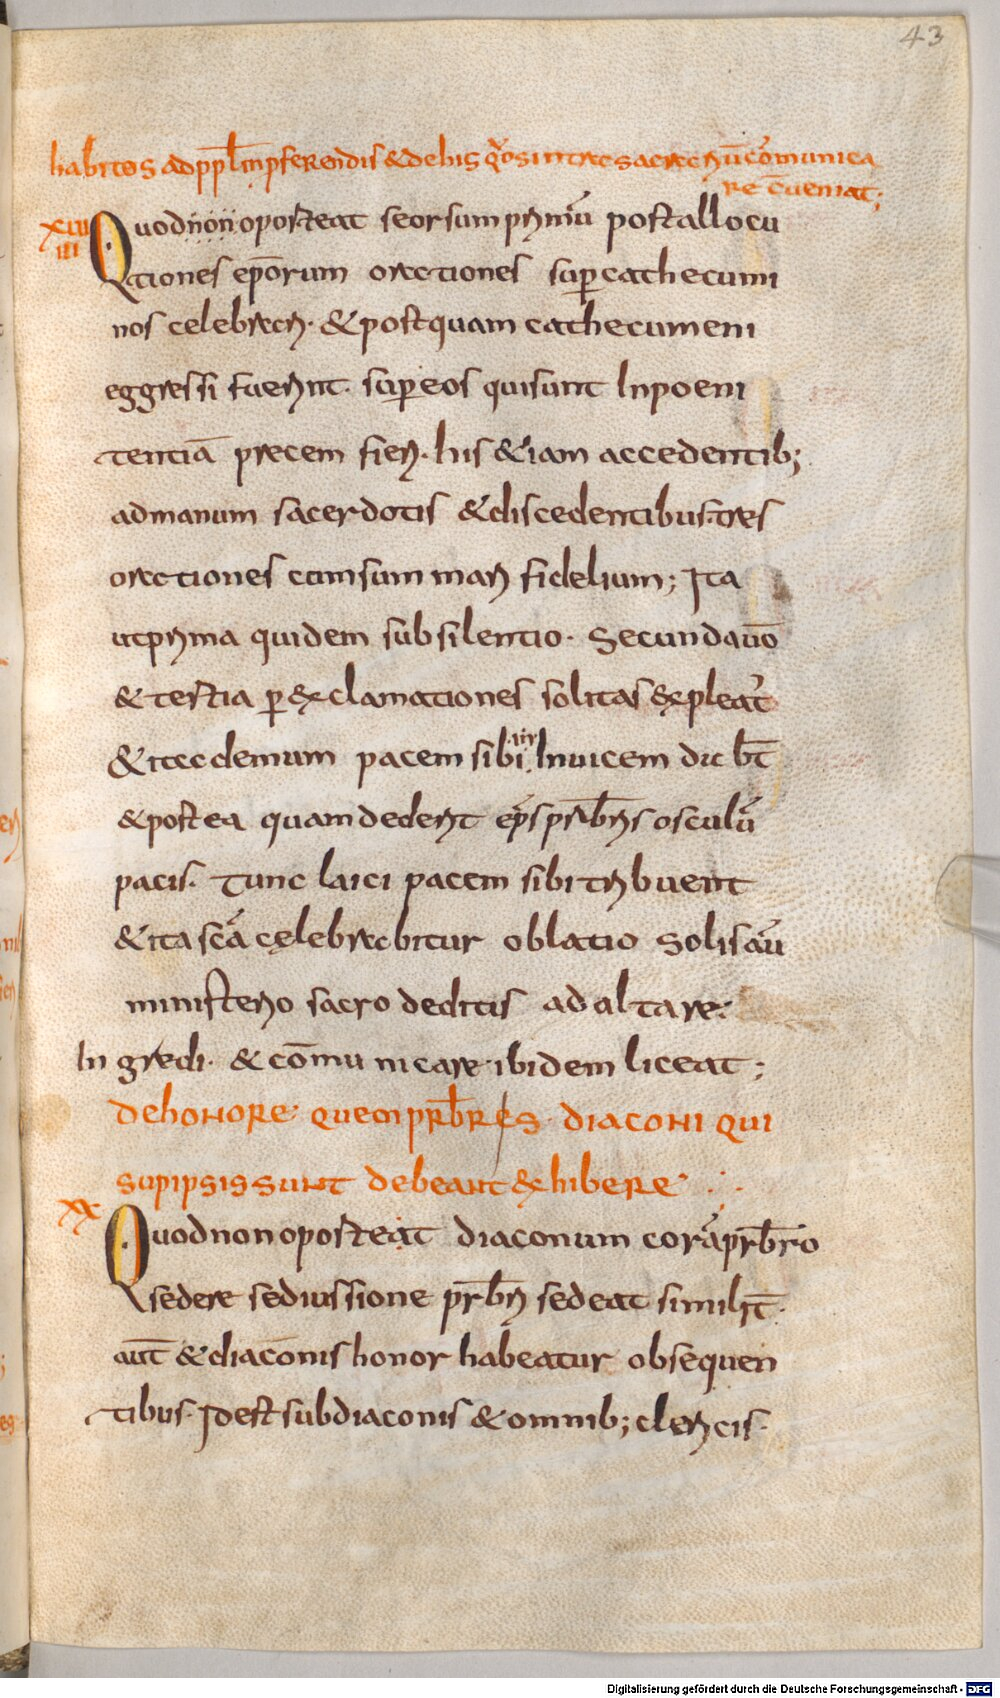 43
habitos ad ppl̄m p̱ferendis & dehis q̊s intra sacrariū cōmunica
re c̄ueniat;
XUIII
Quod non oporteat seorsum primū post allocu
tiones ep̄orum orationes super cathecumi
nos celebrari · & postquam cathecumeni
eggressi fuerint · super eos qui sunt In poeni
tentiā precem fieri · his & iam accedentib;
ad manum sacerdotis & discedentibus · tres
orationes consummari fidelium; Ita
ut prima quidem sub silentio · Secunda uō
& tertia ꝑ exclamationes solitas expleāt
& ita demum pacem sibi In uicem da bt̄
& postea quam dederint ep̄s prb̄ris osculū
pacis · Tunc laici pacem sibi tribuent
& ita scā celębrabitur oblatio Solis aū
ministerio sacro deditis ad altare
In gredi · & cōmunicare ibidem liceat ;
De honore quem prb̄res · diaconi qui
sup ipsis sunt debeant exhibere
XX
Quod non oporteat diaconum corā prb̄ro
sedere sed iussione prb̄ri sedeat similit̄ ·
aut̄ & diaconis honor habeatur obsequen
tibus · Id est subdiaconis & omnib; clericis ·
Digitalisierung gefördert durch die Deutsche Forschungsgemeinschaft - DFG